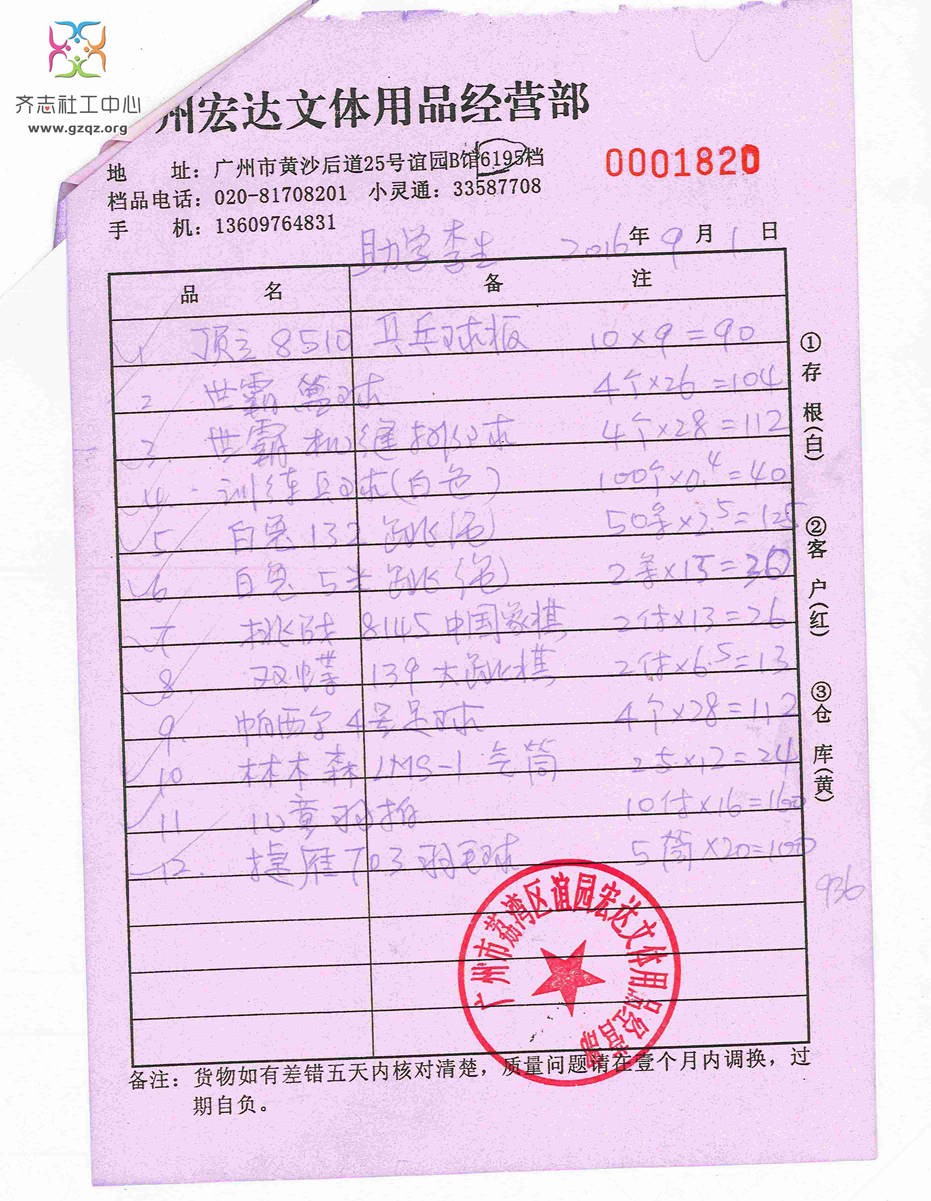 齐志社工中心
www.gzqz.org
州宏达文体用品经营部
地 址：广州市黄沙后道25号谊园B馆6195档
0001820
档品电话：020-81708201 小灵通：33587708
手 机：13609764831
助学李生 2016年9月1日
品 名 备 注
1 顶立8510 乒乓球板 10×9=90
2 世霸篮球 4个×26=104
3. 世霸机缝排球 4个×28=112
4. 训练乒球(白色) 100个×0.4=40
5. 白兔132跳绳 50条×2.5=125
6 白兔5米跳绳 2条×15=30
7 挑战8145中国象棋 2付×13=26
8. 双蝶139大跳棋 2付×6.5=13
9. 帕西尔4号足球 4个×28=112
10 林木森LMS-1气筒 ×12=24
11 儿童羽拍 10付×16=160
12. 捷雁703羽毛球 5筒×20=100
936
①存根(白)
②客户(红)
③仓库(黄)
广州市荔湾区谊园宏达文体用品经营部
备注：货物如有差错五天内核对清楚，质量问题请在壹个月内调换，过
期自负。